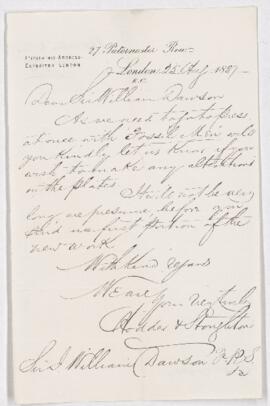 27 Paternoster Row
TELEGRAPHIC ADDRESS
EXPOSITOR LONDON
London 25 Aug 1887
E.C.
Dear Sir William Dawson
As we need to go to press
at once with Fossil Men will
you kindly let us know if you
wish to make any alterations
in the plates.
It will not be very
long we presume, before you
send us first portion of the
new work
With kind regards
We are
Yours very truly
Hodder & Stoughton
Sir J. William Dawson F.R.S